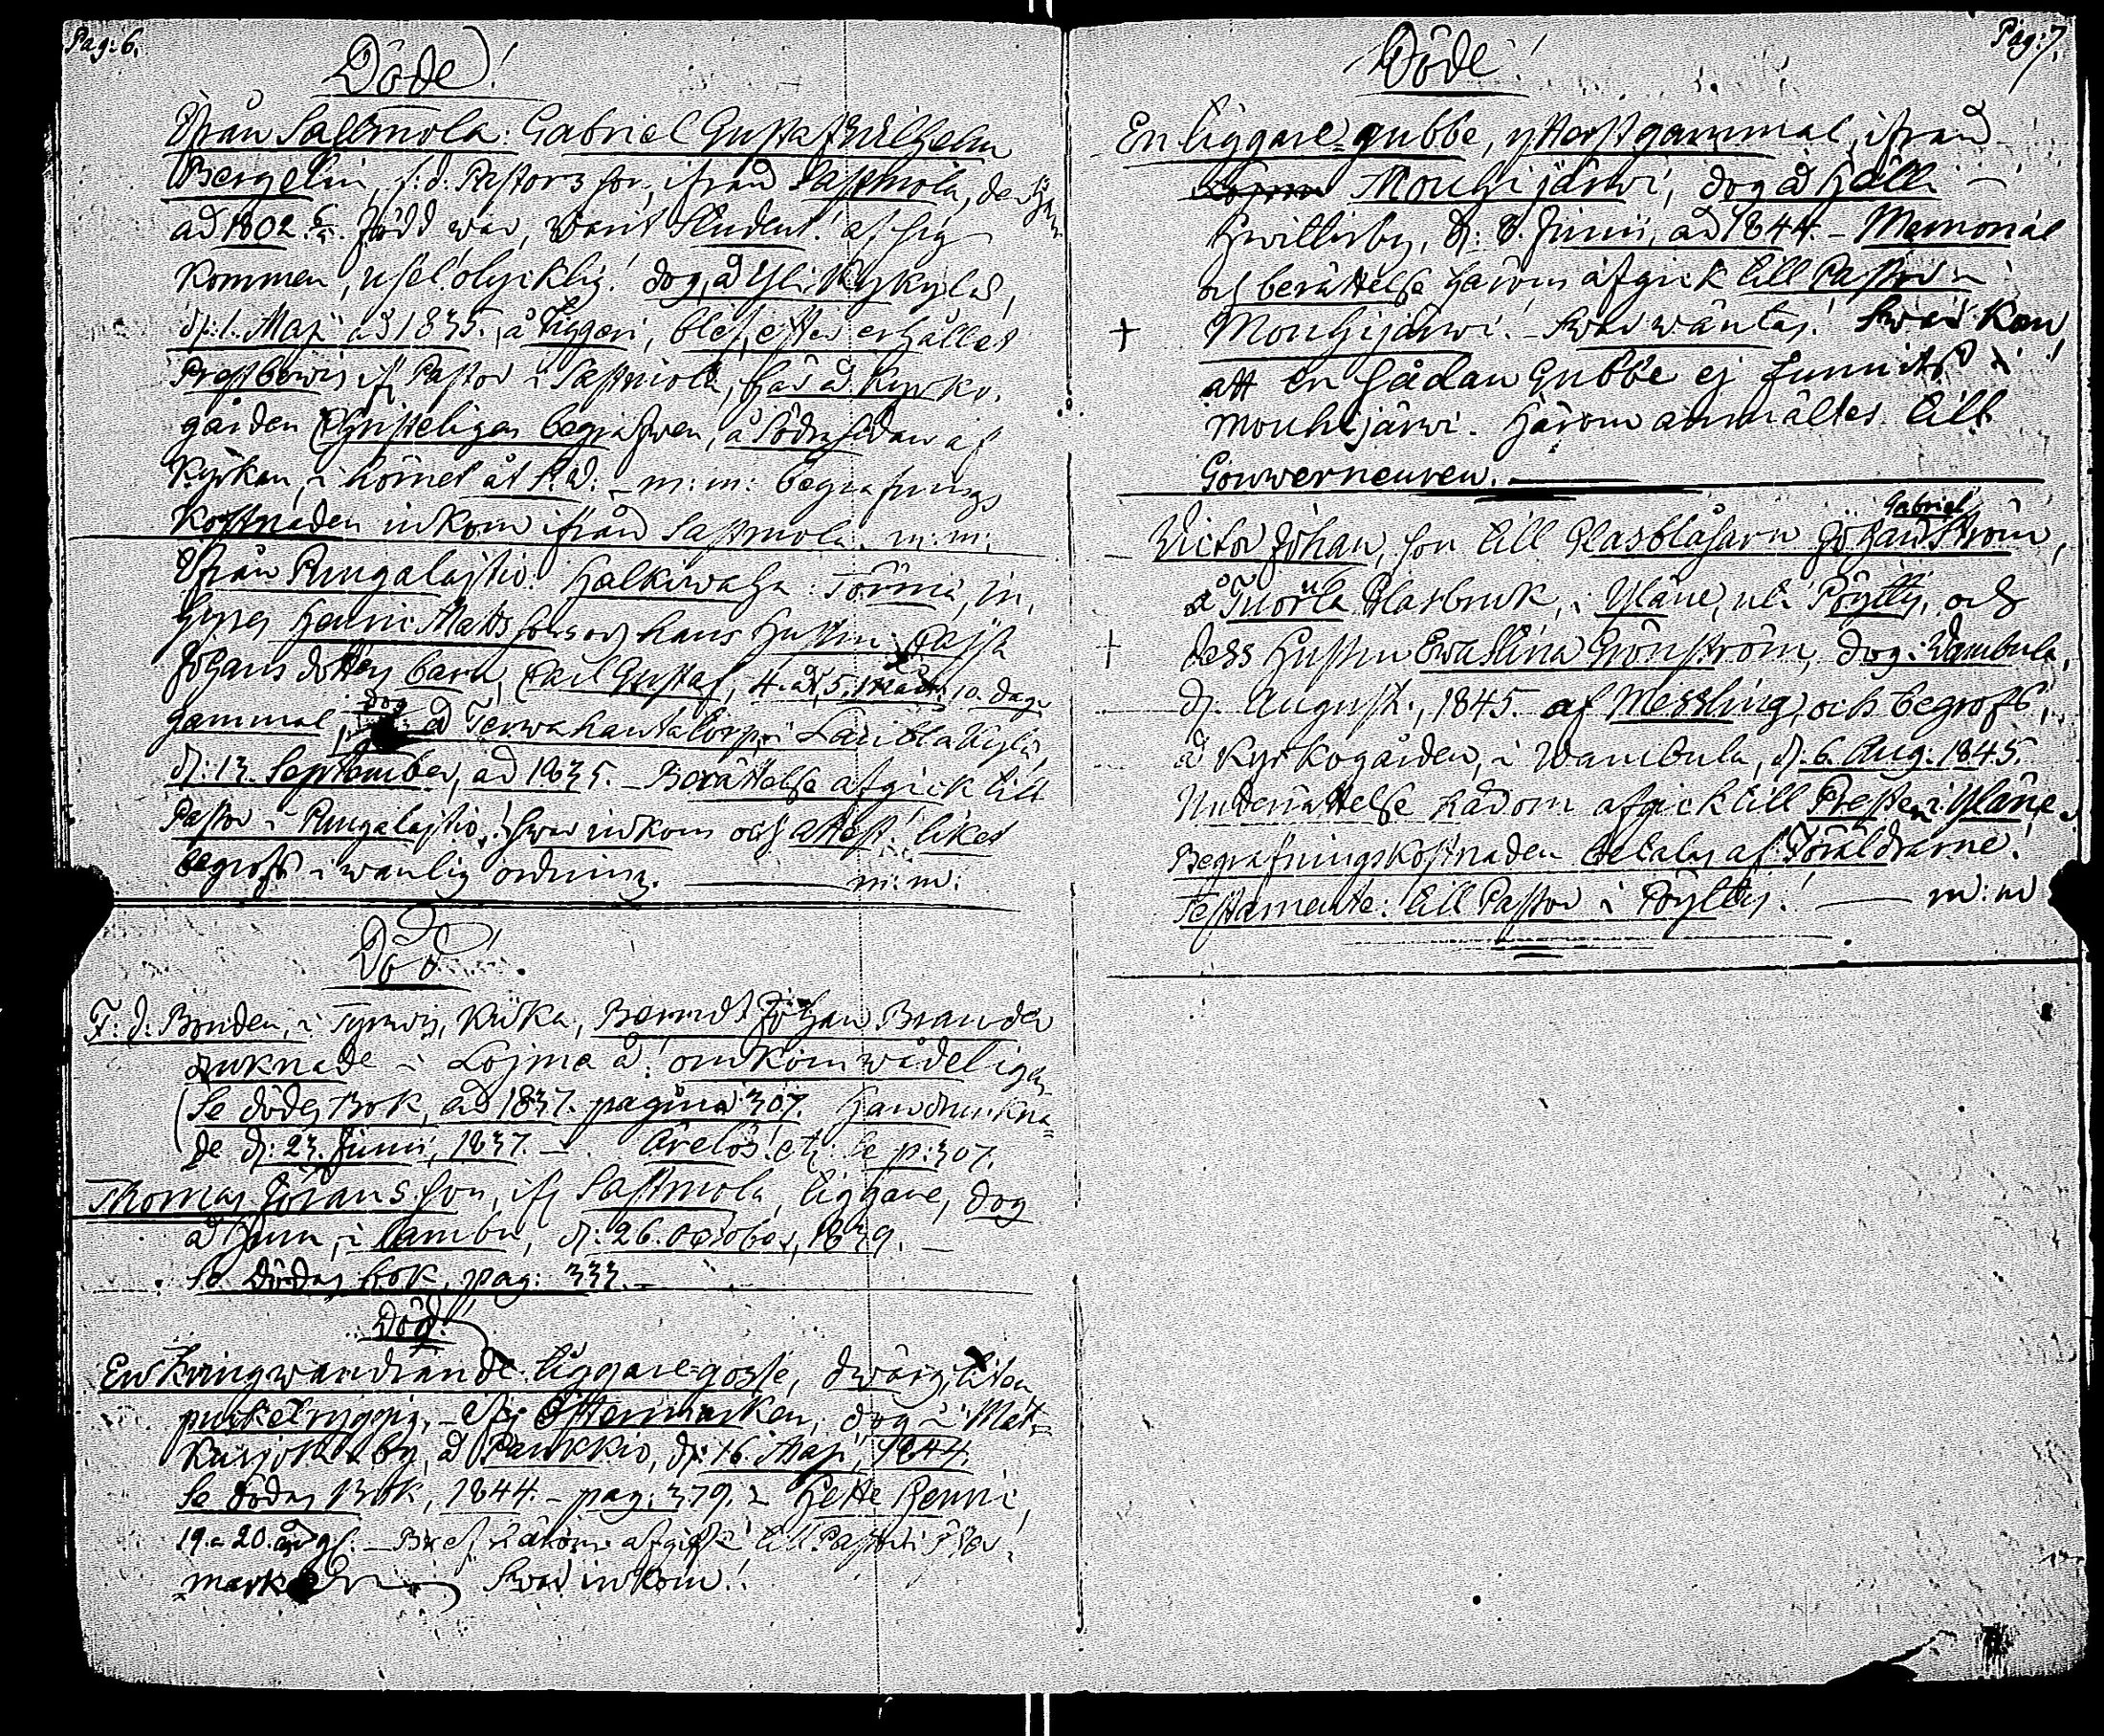 Pag: 6.
Döde!
Ifrån Sastmola: Gabriel Gustaf Wilhelm
Bergelin, f: d. Pastors son, ifrån Sastmola, der han
åd 1802 6/5. född war, warit Student! af sig
kommen, usel! olycklig! dog, å Yli Kyrkylä,
d: 1. Maji åd 1835. å Tiggeri, blef, efter erhållet
Prestbewis ifr Pastor i Sastmola, här å Kyrko-
gården Christeligen begrafwen, å Södra sidan af
Kyrkan, i hörnet åt S.W: – m: m: begrafnings
kostnaden inkom ifrån Sastmola. m: m:
Ifrån Pungalajtio. Halkiwaha: Törmä, in-
hyses Henric Matts sons och hans Hustru Cajsa
Johans dotters barn, Carl Gustaf, 4. år, 5. Måd: 10. dagr
gammal, dog å Terwahauta torp, i Lauttakylä,
d: 13. September, åd 1835. – Berättelse afgick till
Pastor i Pungalajtio. Swar inkom och attest, liket
begrofs i wanlig ordning. — m: m:
Död!
F: d. Bonden, i Tyrwis, Kiika, Berndt Johan Brander
drunknade i Lojma å! omkom wådeligen
(Se dödes Bok, åd 1837. pagina 307. Han drunkna=
de d: 23. Junii, 1837. – Ärelös! etc: Se p: 307.
Thomas Johans son, ifr Sastmola, tiggare, dog
å Huru, i Sambu, d: 26. October, 1839. –
Se Dödas bok, pag: 333. –
Död!
En kringwandrande tiggare=gosse, dwärg, liten,
puckelryggig, – ifr Östermarken, dog i Mat-
kusjoki by, å Paukkio, d: 16. Maji, 1844.
Se dödas Bok, 1844. – pag: 379. – Hette Henric,
19. a 20. år gl. – Bref härom afgick till Pastor i Öster-
mark Swar inkom!
Pag: 7.
Döde!
En tiggare=gubbe, ytterst gammal, ifrån
Mouhijärwi, dog å Hälli –
Hwittisby, d: 8. Junii, åd 1844. – Memorial
och berättelse härom afgick till Pastor i
+ Mouhijärwi! – Swar wäntas! Swar kom
att en sådan Gubbe ej funnits i
Mouhijärwi. Härom anmältes till
Gouverneuren. —
Gabriel
Victor Johan, son till Glasblåsarn Johan Ström,
å Tuorla Glasbruk, i Yläne, uti Pöytis, och
+ dess Hustru Ewa Stina Grönström, dog i Wambula,
d: August., 1845. af Messling, och begrofs,
å Kyrkogården, i Wambula, d: 6. Aug: 1845.
Underrättelse härom afgick till Presten i Yläne.
Begrafningskostnaden betalas af Föräldrarne.
Testamente: till Pastor i Pöyttis! — m: m